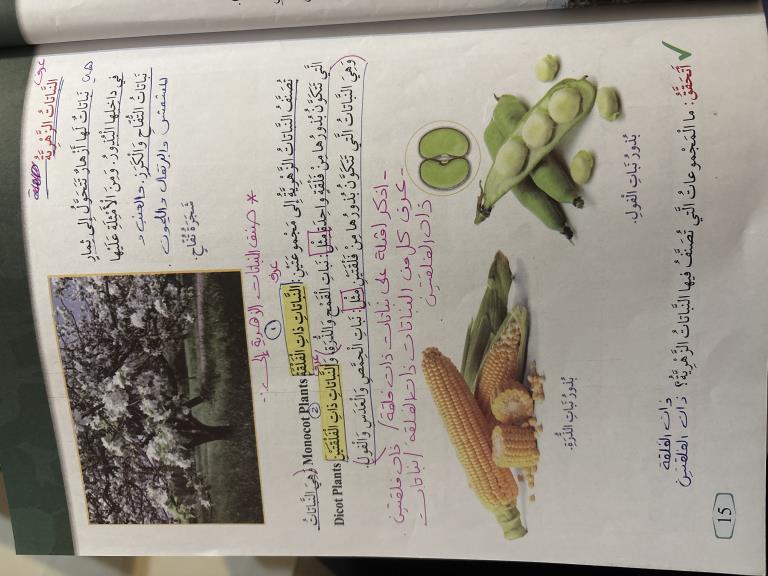 عرف
النَّبَاتَاتُ الزَّهْرِيَّةُ
هي نَبَاتَاتٌ لَهَا أَزْهَارٌ تَتَحَوَّلُ إِلَى ثِمَارٍ
فِي دَاخِلِهَا الْبُذُورُ، وَمِنَ الْأَمْثِلَةِ عَلَيْهَا
نَبَاتَاتُ التُّفَّاحِ وَالْكَرَزِ. والعنب و
المشمش والبرتقال والليمون.
شَجَرَةُ تُفَّاحٍ.
* صنف النباتات الزهرية إلى:
عرف
تُصَنَّفُ النَّبَاتَاتُ الزَّهْرِيَّةُ إِلَى مَجْمُوعَتَيْنِ: النَّبَاتَاتِ ذَاتِ الْفَلْقَةِ
Monocot Plants (وَهِيَ النَّبَاتَاتُ
الَّتِي تَتَكَوَّنُ بُذُورُهَا مِنْ فَلْقَةٍ وَاحِدَةٍ مِثْلُ: نَبَاتِ الْقَمْحِ وَالذُّرَةِ) وَالنَّبَاتَاتِ ذَاتِ الْفَلْقَتَيْنِ
Dicot Plants
وَهِيَ النَّبَاتَاتُ الَّتِي تَتَكَوَّنُ بُذُورُهَا مِنْ فَلْقَتَيْنِ مِثْلُ: نَبَاتِ الْحِمَّصِ وَالْعَدَسِ وَالْفولِ.
- اذكر امثلة على نباتات ذات فلقة / ذات فلقتين.
- عرف كل من النباتات ذات الفلقة / النباتات
ذات الفلقتين
بُذُورُ نَبَاتِ الْفولِ.
بُذُورُ نَبَاتِ الذُّرَةِ.
أَتَحَقَّقُ: مَا الْمَجْمُوعَاتُ الَّتِي تُصَنَّفُ فِيهَا النَّبَاتَاتُ الزَّهْرِيَّةُ؟ ذات الفلقة
ذات الفلقتين
15